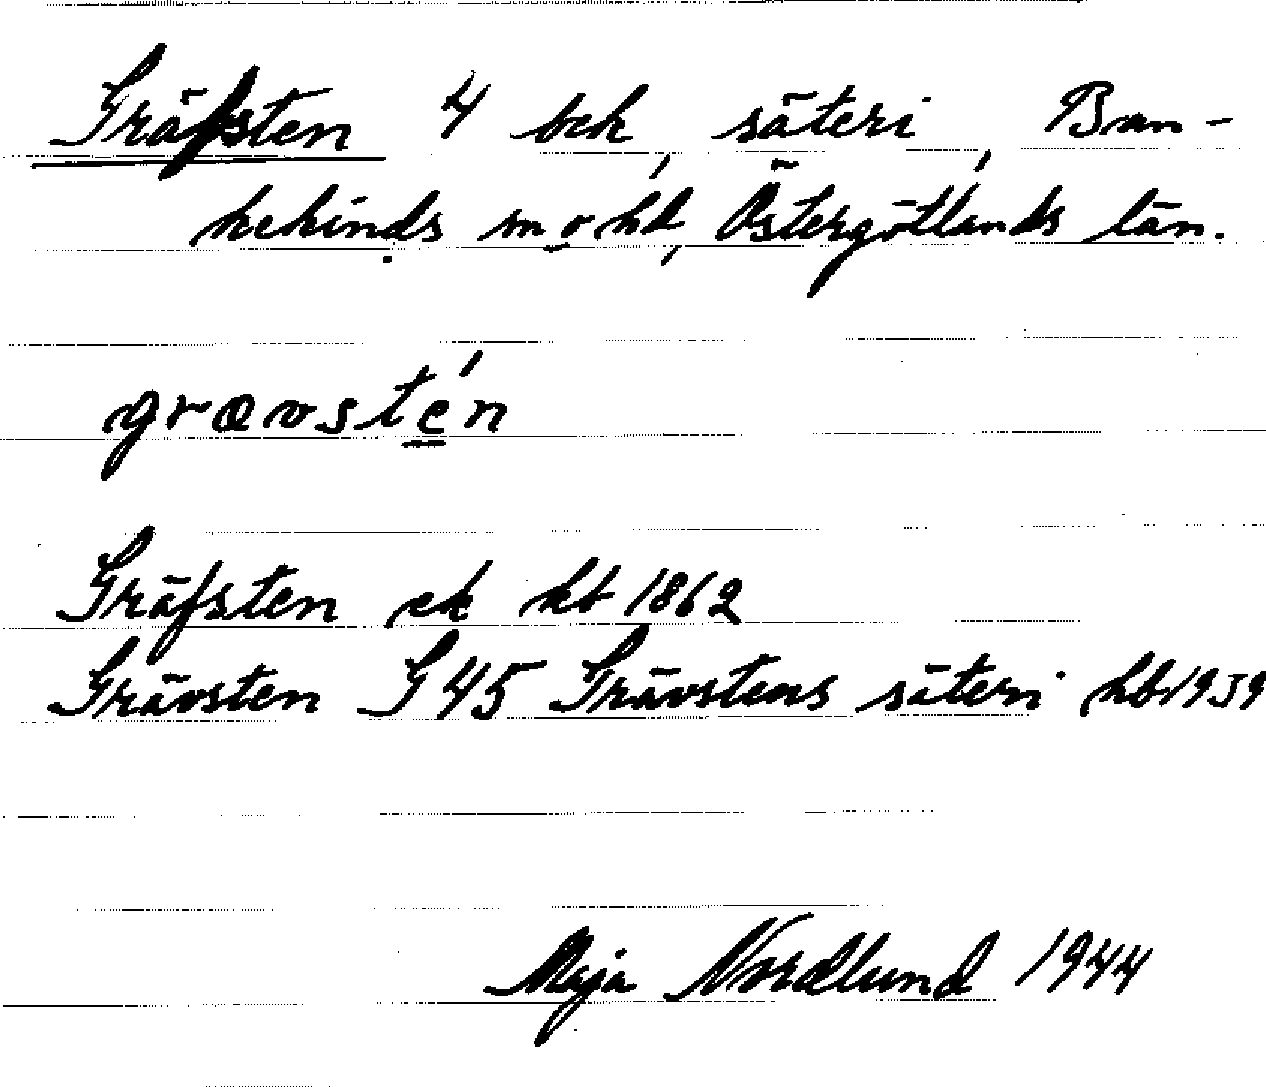 Gräfsten 4 och, säteri, Ban-
kekinds sn o hd, Östergötlands län.
grævstén
Gräfsten ek kb 1862
Grävsten G 45 Grävstens säteri kb 1939
Maja Nordlund 1944